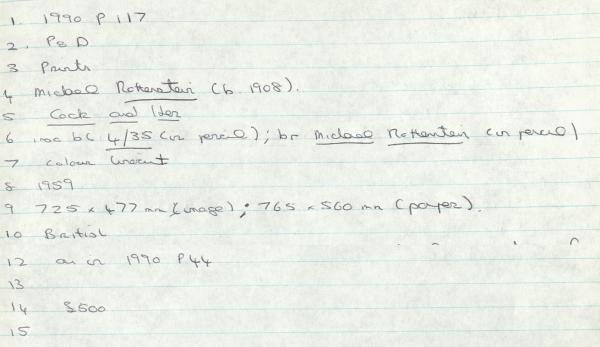 1. 1990 P 117
2. P&D
3 Prints
4 Michael Rothenstein (b. 1908).
5 Cock and Hen
6 insc bc 4/35 (in pencil); br Michael Rothenstein (in pencil)
7 colour linocut
8 1959
9 725 x 477 mm (image); 765 x 560 mm (paper).
10 British
12 as in 1990 P44
13
14 $500
15